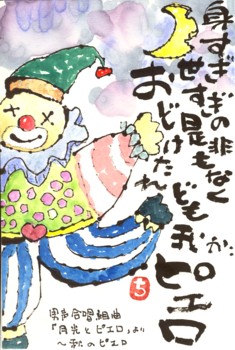 身すぎ
世すぎの
是非もなく
おどけたれ
ども我が
ピエロ
ち
男声合唱組曲
「月光とピエロ」より
～秋のピエロ